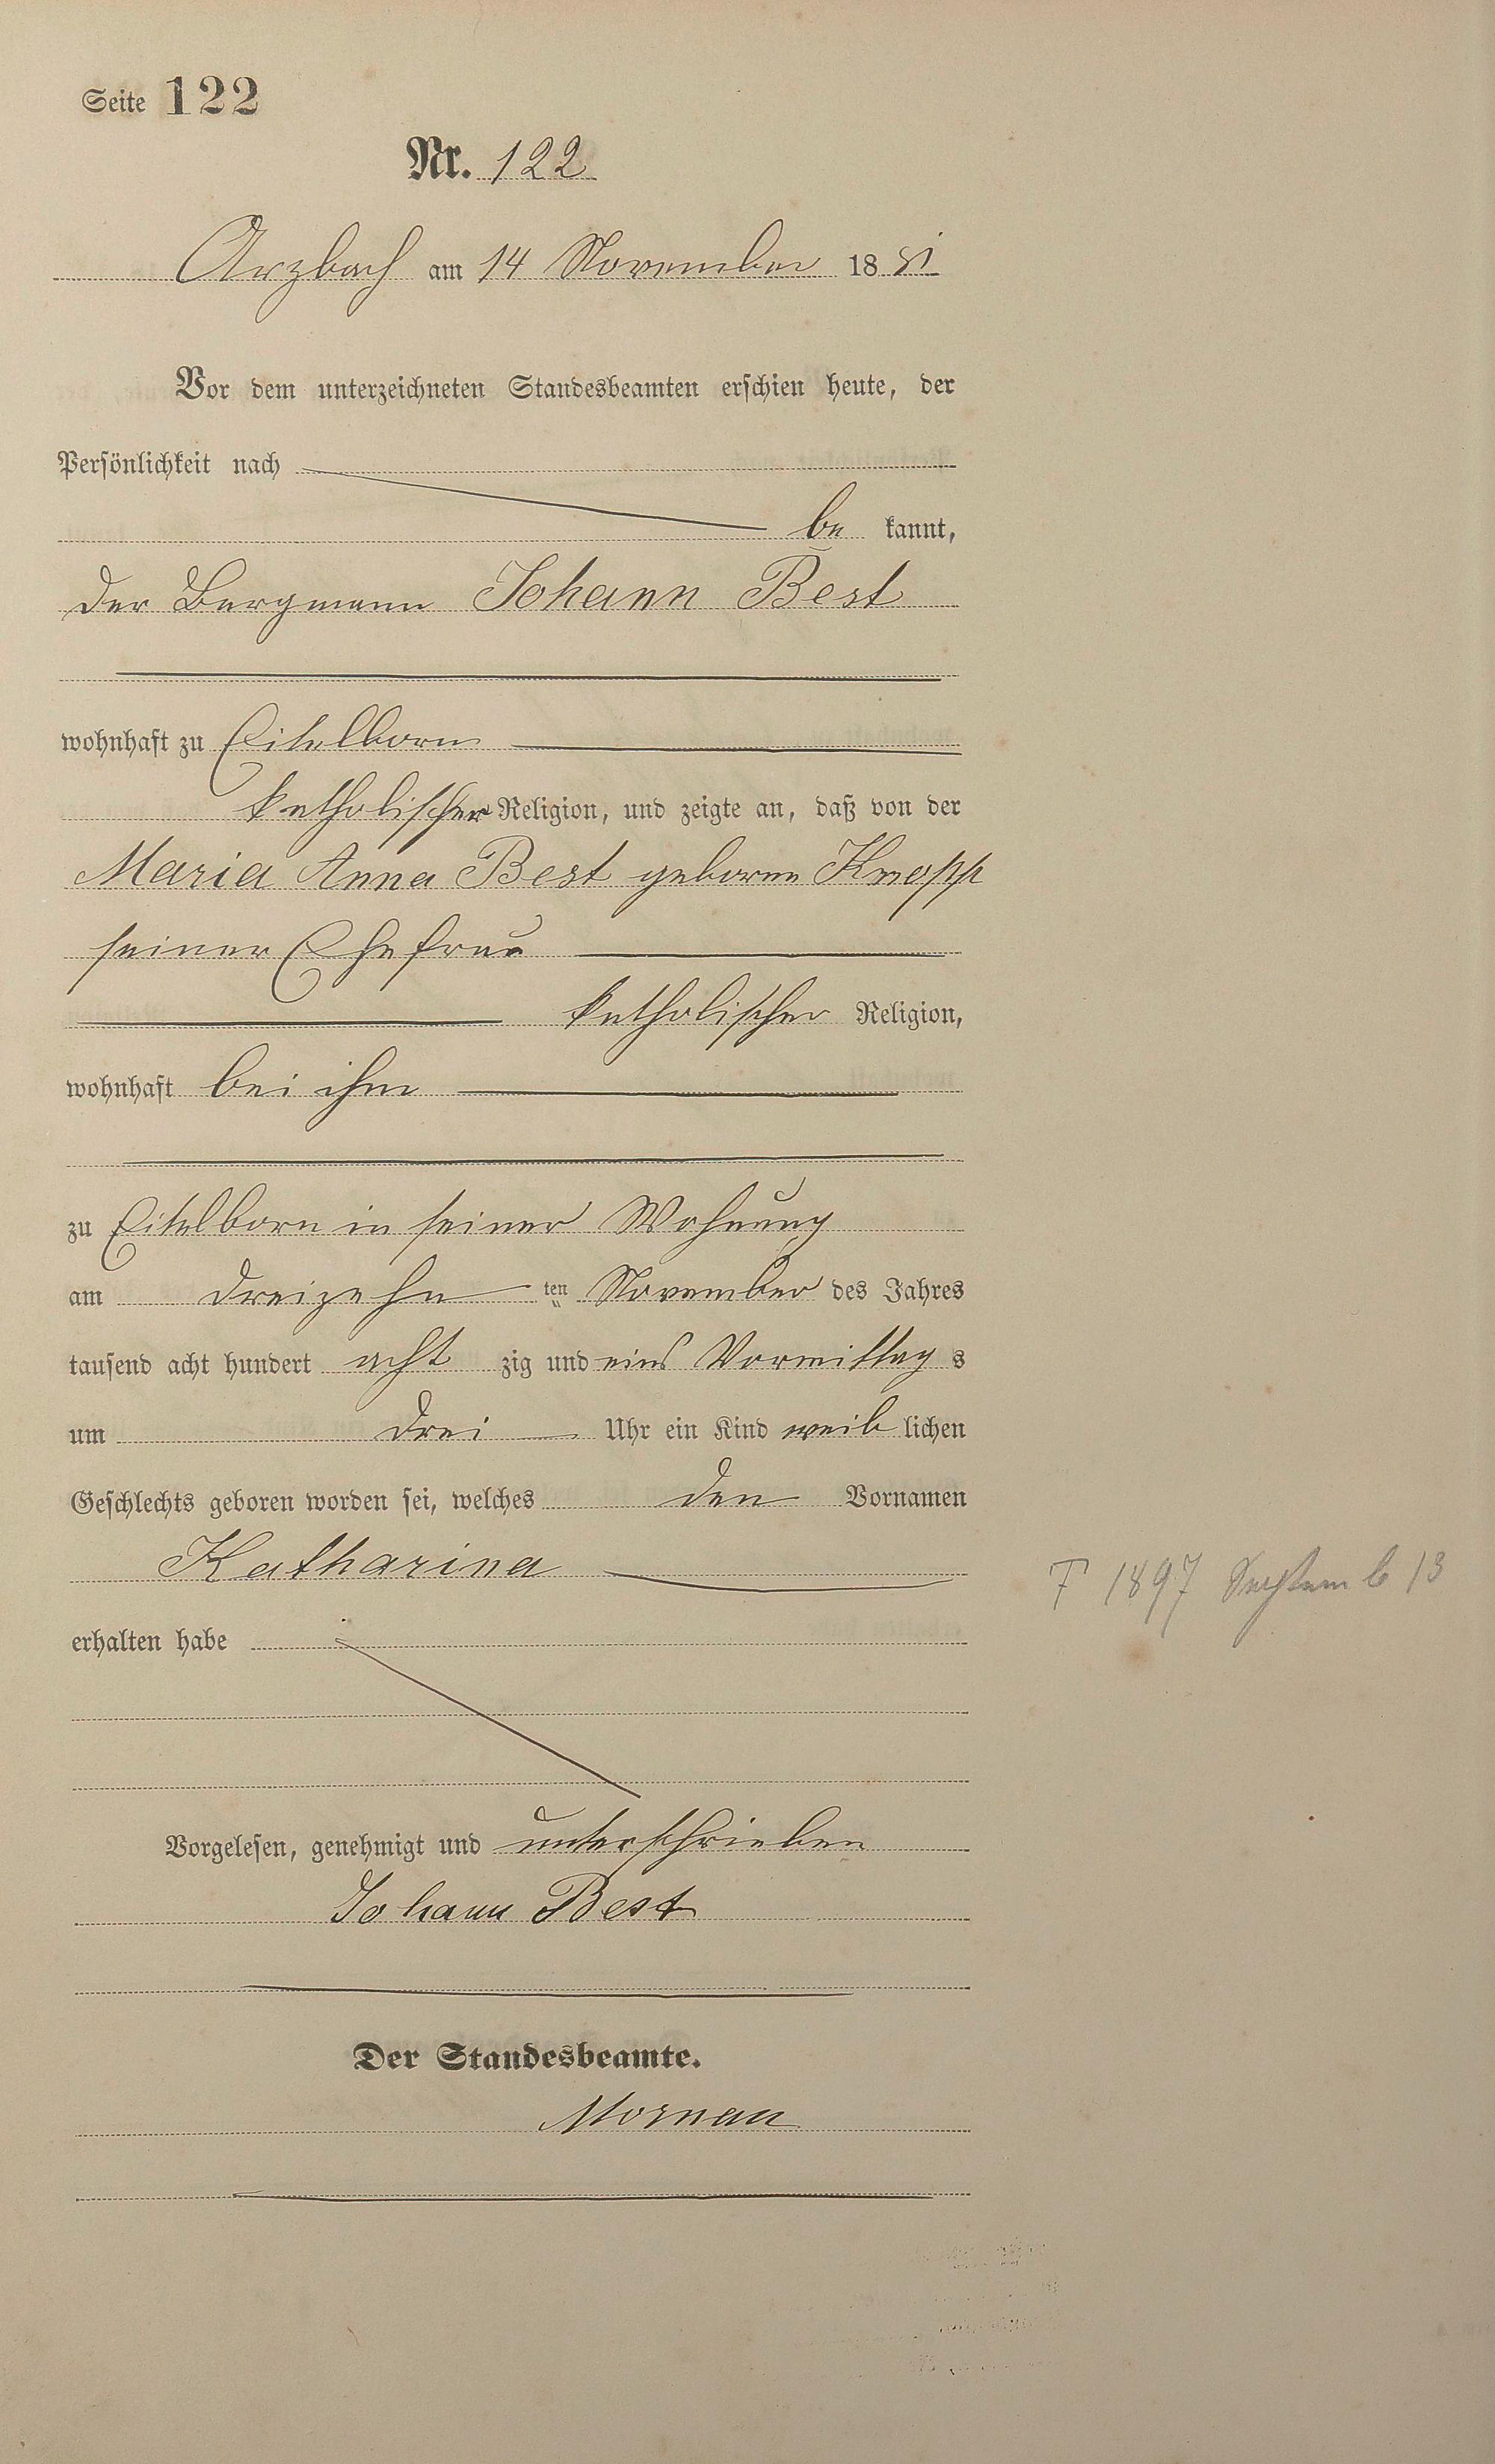 Seite 122
Nr. 122
Arzbach am 14 November 1881
Vor dem unterzeichneten Standesbeamten erschien heute, der
Persönlichkeit nach
be kannt,
der Bergmann Johann Best
wohnhaft zu Eitelborn
katholischer Religion, und zeigte an, daß von der
Maria Anna Best geborne Knopp
seiner Ehefrau
katholischer Religion,
wohnhaft bei ihm
zu Eitelborn in seiner Wohnung
am dreizehn ten November des Jahres
tausend acht hundert acht zig und eins Vormittag s
um drei Uhr ein Kind weib lichen
Geschlechts geboren worden sei, welches den Vornamen
Katharina
† 1897 Septemb 13
erhalten habe
Vorgelesen, genehmigt und unterschrieben
Johann Best
Der Standesbeamte.
Mornau